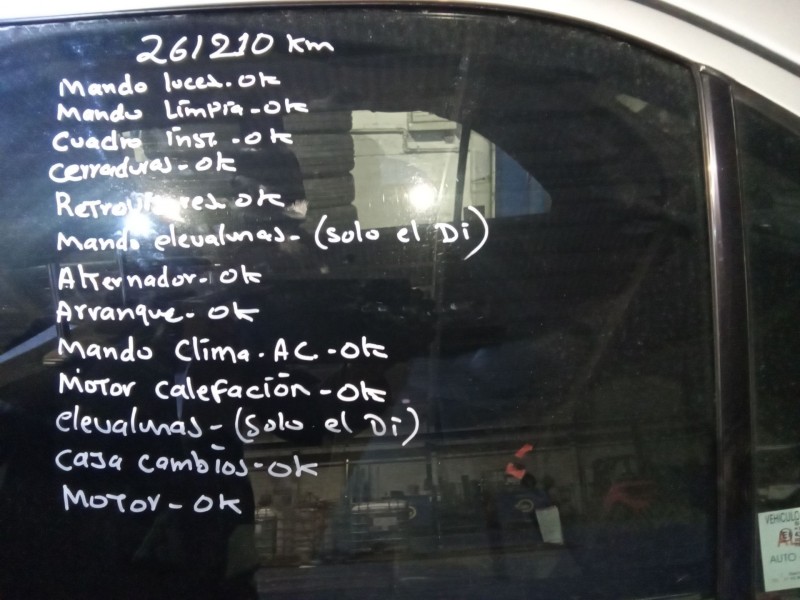 261210 km
Mando luces. OK
Mando Limpia - OK
Cuadro inst. - OK
Cerraduras - OK
Retrovisores. OK
Mando elevalunas - (Solo el Di)
Alternador - OK
Arranque - OK
Mando Clima. AC. - OK
Motor calefación - OK
elevalunas - (Solo el Di)
Caja cambios - OK
Motor - OK
VEHICULO
AUTO